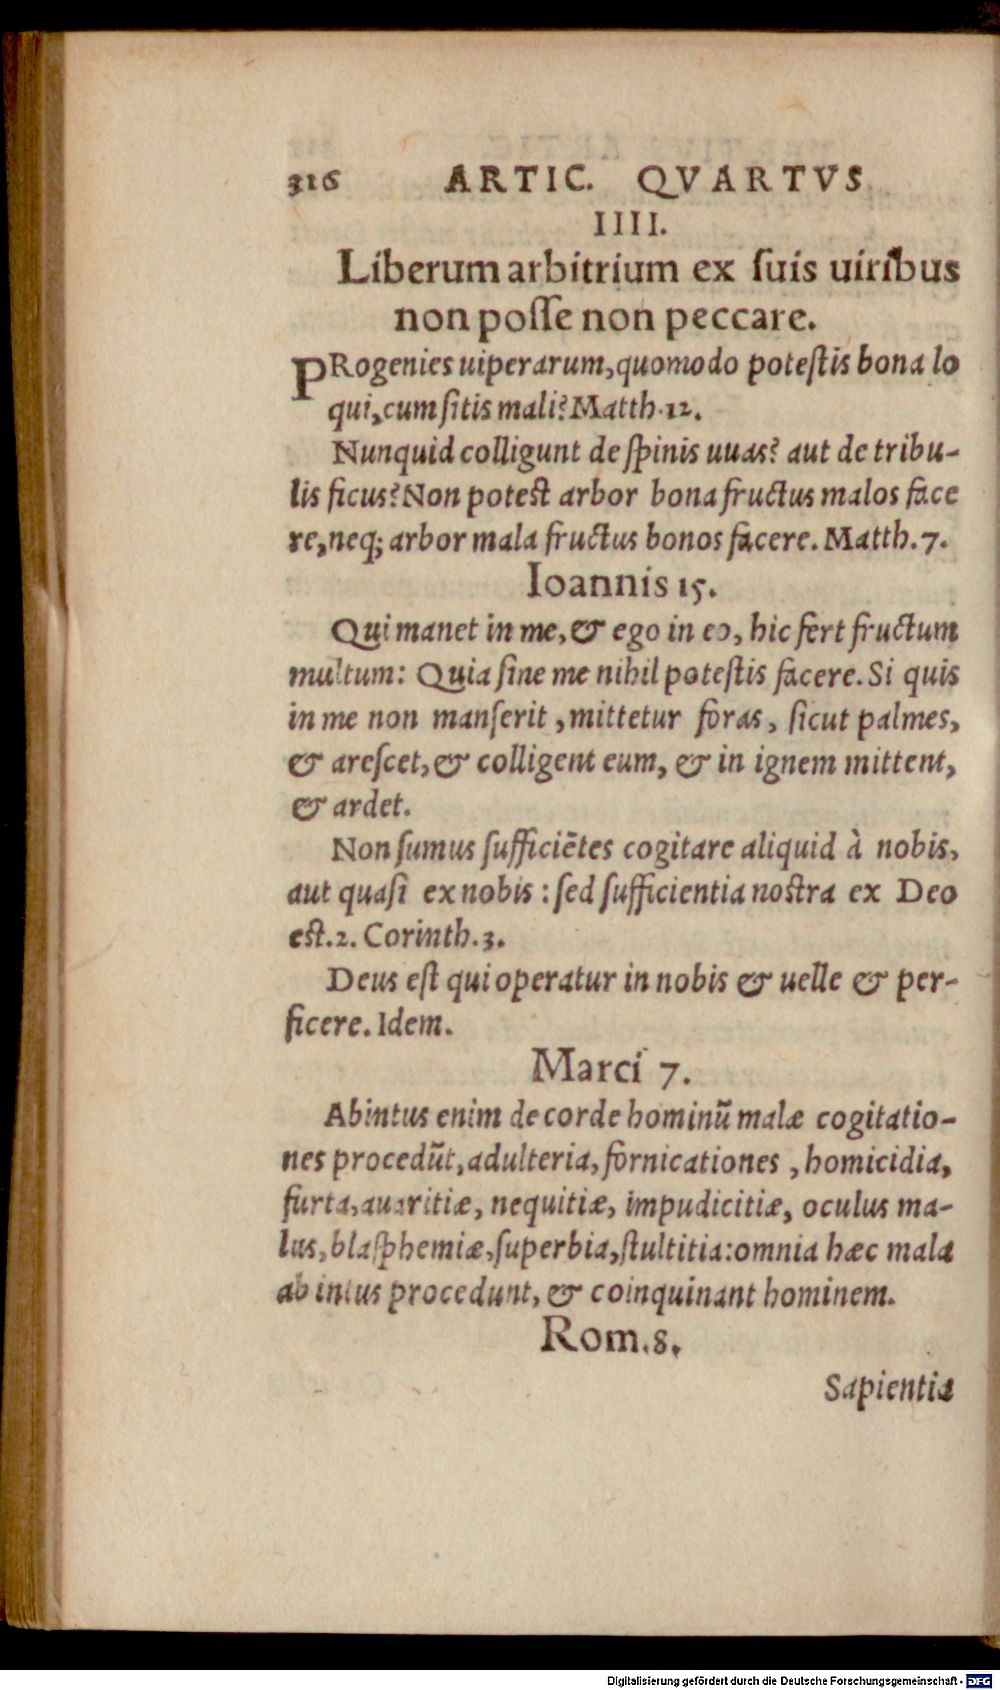 316 ARTIC. QVARTVS
IIII.
Liberum arbitrium ex ſuis uiribus
non poſſe non peccare.
PRogenies uiperarum, quomodo poteſtis bona lo
qui, cum ſitis mali? Matth. 12.
Nunquid colligunt de ſpinis uuas? aut de tribu-
lis ficus? Non poteſt arbor bona fructus malos face
re, neq; arbor mala fructus bonos facere. Matth. 7.
Ioannis 15.
Qui manet in me, & ego in eo, hic fert fructum
multum: Quia ſine me nihil poteſtis facere. Si quis
in me non manſerit, mittetur foras, ſicut palmes,
& areſcet, & colligent eum, & in ignem mittent,
& ardet.
Non ſumus ſufficiētes cogitare aliquid à nobis,
aut quaſi ex nobis: ſed ſufficientia noſtra ex Deo
eſt. 2. Corinth. 3.
Deus eſt qui operatur in nobis & uelle & per-
ficere. Idem.
Marci 7.
Abintus enim de corde hominũ malæ cogitatio-
nes procedũt, adulteria, fornicationes, homicidia,
furta, auaritiæ, nequitiæ, impudicitiæ, oculus ma-
lus, blaſphemiæ, ſuperbia, ſtultitia: omnia hæc mala
ab intus procedunt, & coinquinant hominem.
Rom. 8.
Sapientia
Digitalisierung gefördert durch die Deutsche Forschungsgemeinschaft - DFG